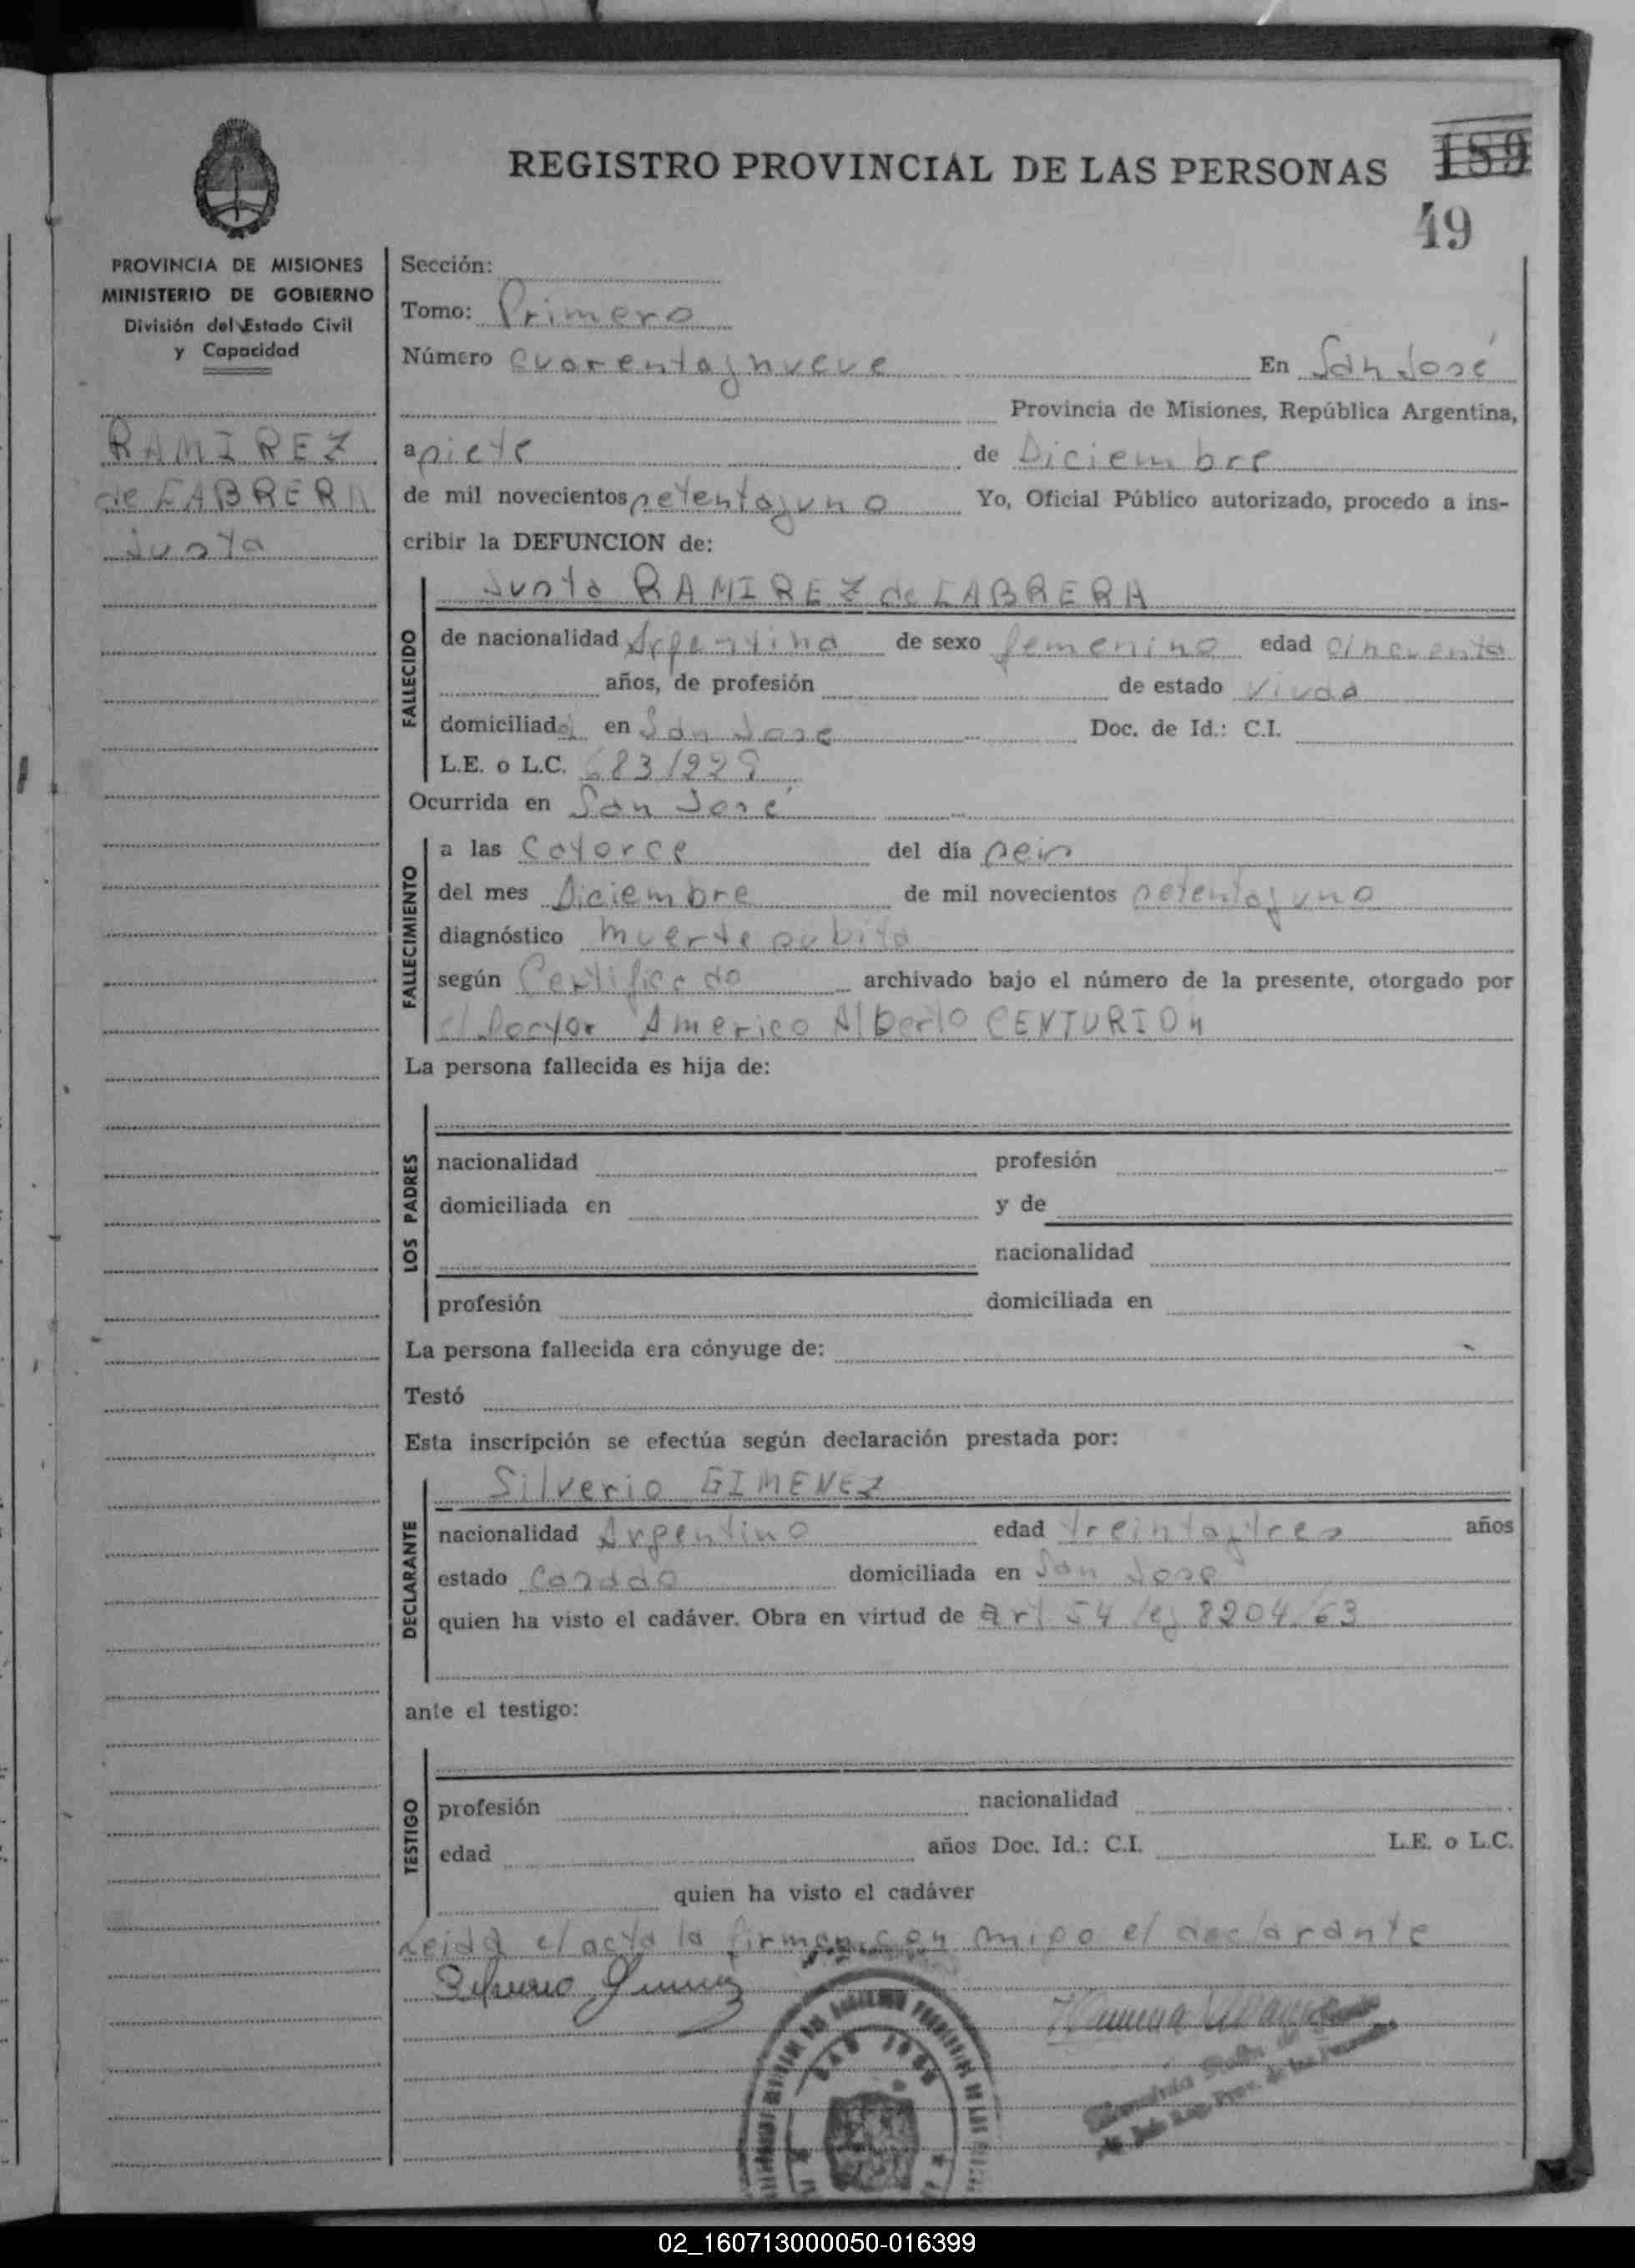 REGISTRO PROVINCIAL DE LAS PERSONAS
159
49
PROVINCIA DE MISIONES
MINISTERIO DE GOBIERNO
División del Estado Civil
y Capacidad
RAMIREZ
de CABRERA
Justa
Sección:
Tomo: Primero
Número cuarentaynueve En San José
Provincia de Misiones, República Argentina,
a siete de Diciembre
de mil novecientos setentayuno Yo, Oficial Público autorizado, procedo a ins-
cribir la DEFUNCION de:
FALLECIDO
Justa RAMIREZ de CABRERA
de nacionalidad Argentina de sexo femenino edad cincuenta
años, de profesión de estado Viuda
domiciliada en San Jose Doc. de Id.: C.I.
L.E. o L.C.
Ocurrida en San José
FALLECIMIENTO
a las Catorce del día seis
del mes Diciembre de mil novecientos setentayuno
diagnóstico muerte subita
según Certificado archivado bajo el número de la presente, otorgado por
el Doctor Americo Alberto CENTURION
La persona fallecida es hija de:
LOS PADRES
nacionalidad profesión
domiciliada en y de
nacionalidad
profesión domiciliada en
La persona fallecida era cónyuge de:
Testó
Esta inscripción se efectúa según declaración prestada por:
DECLARANTE
Silverio GIMENEZ
nacionalidad Argentino edad treintaytres años
estado Casado domiciliada en San Jose
quien ha visto el cadáver. Obra en virtud de art 54 ley 8204/63
ante el testigo:
TESTIGO
profesión nacionalidad
edad años Doc. Id.: C.I. L.E. o L.C.
quien ha visto el cadáver
Leida el acta la firman con migo el declarante
02_160713000050-016399